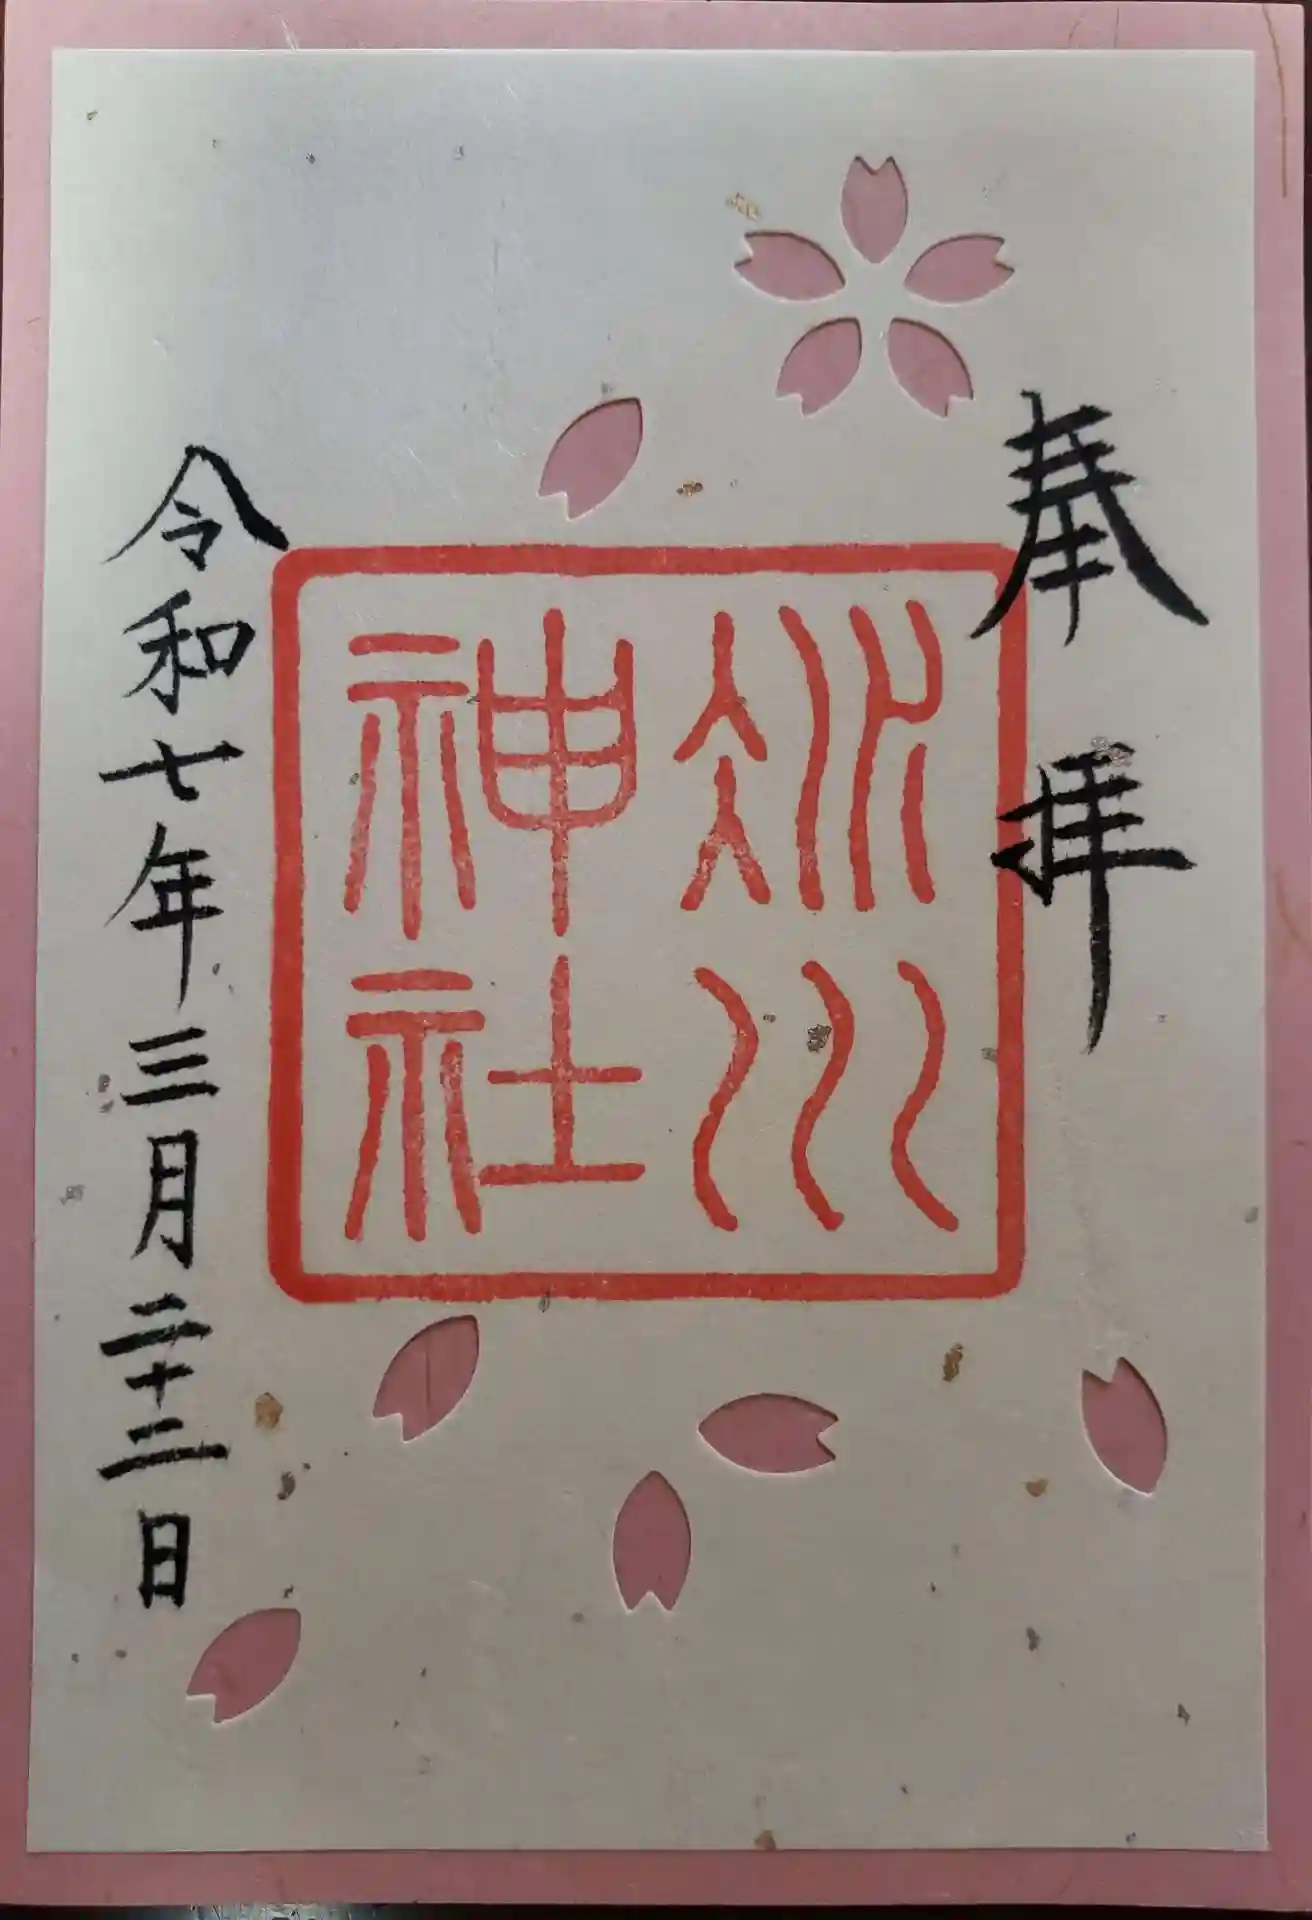 奉拝
冰川
神社
令和七年三月二十二日